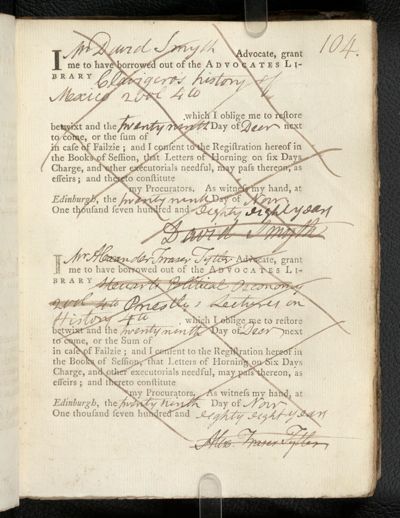 104.
I Mr David Smyth Advocate, grant
me to have borrowed out of the ADVOCATES LI-
BRARY Clavigeros history of
Mexico 2 vol 4to
, which I oblige me to restore
betwixt and the twenty ninth Day of Decr next
to come, or the sum of
in case of Failzie; and I consent to the Registration hereof in
the Books of Session, that Letters of Horning on six Days
Charge, and other executorials needful, may pass thereon, as
effeirs; and thereto constitute
my Procurators. As witness my hand, at
Edinburgh, the twenty ninth Day of Novr
One thousand seven hundred and eighty eight years
David Smyth
I Mr Alexander Fraser Tytler Advocate, grant
me to have borrowed out of the ADVOCATES LI-
BRARY Steuarts Political Oeconomy
2 vol 4to Priestly's Lectures on
History 4to , which I oblige me to restore
betwixt and the twenty ninth Day of Decr next
to come, or the Sum of
in case of Failzie; and I consent to the Registration hereof in
the Books of Session, that Letters of Horning on Six Days
Charge, and other executorials needful, may pass thereon, as
effeirs; and thereto constitute
my Procurators. As witness my hand, at
Edinburgh, the twenty ninth Day of Novr
One thousand seven hundred and eighty eight years
Alexr Fraser Tytler